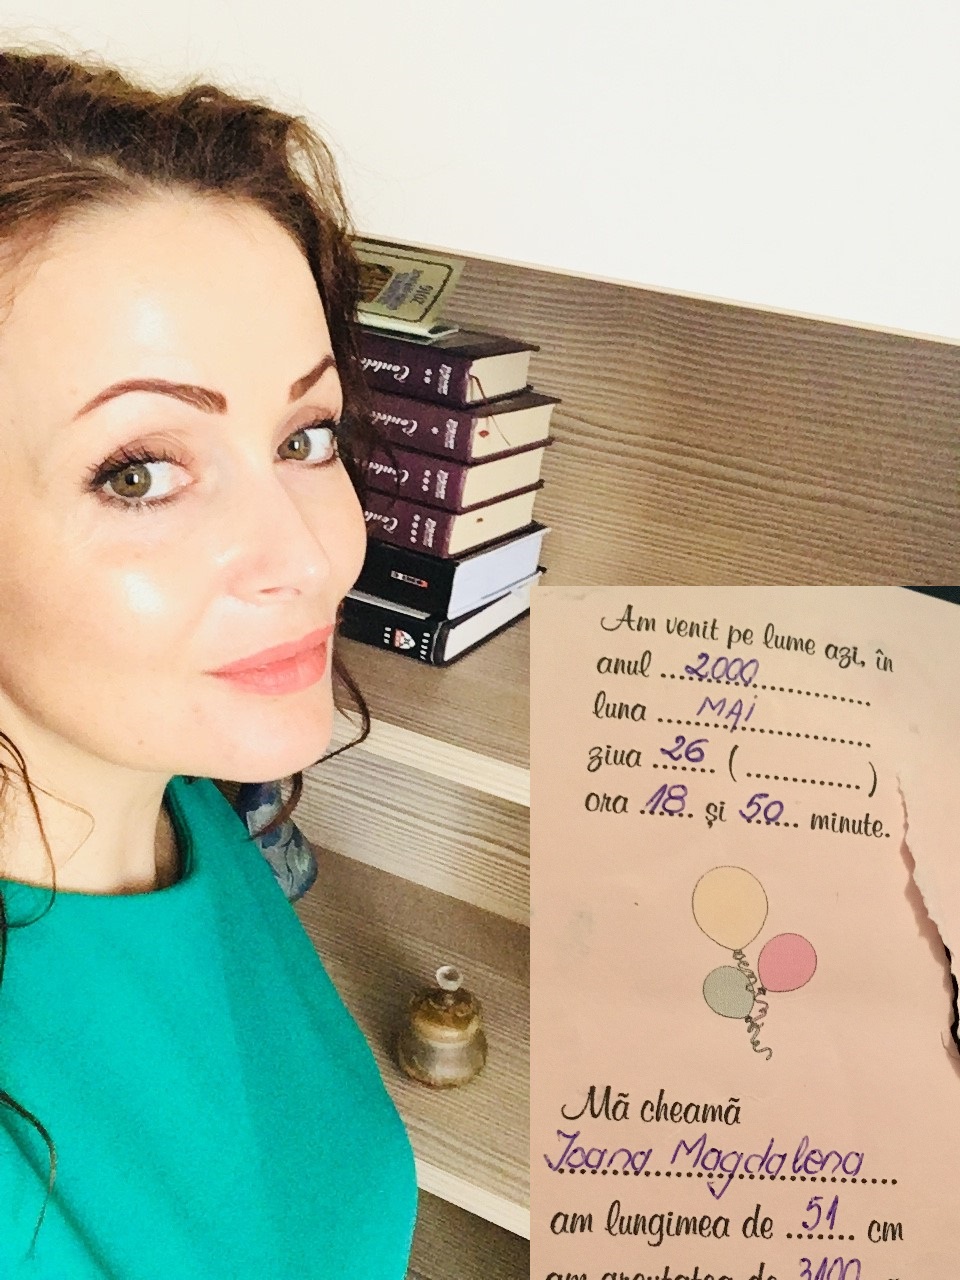 2016
Contele
Contele
Contele
Conte
Am venit pe lume azi, în
anul ...2000...
luna ... MAI ...
ziua 26 (............)
ora 18 și 50 minute.
Mă cheamă
Ioana Magdalena
am lungimea de 51 cm
am greutatea de 3100